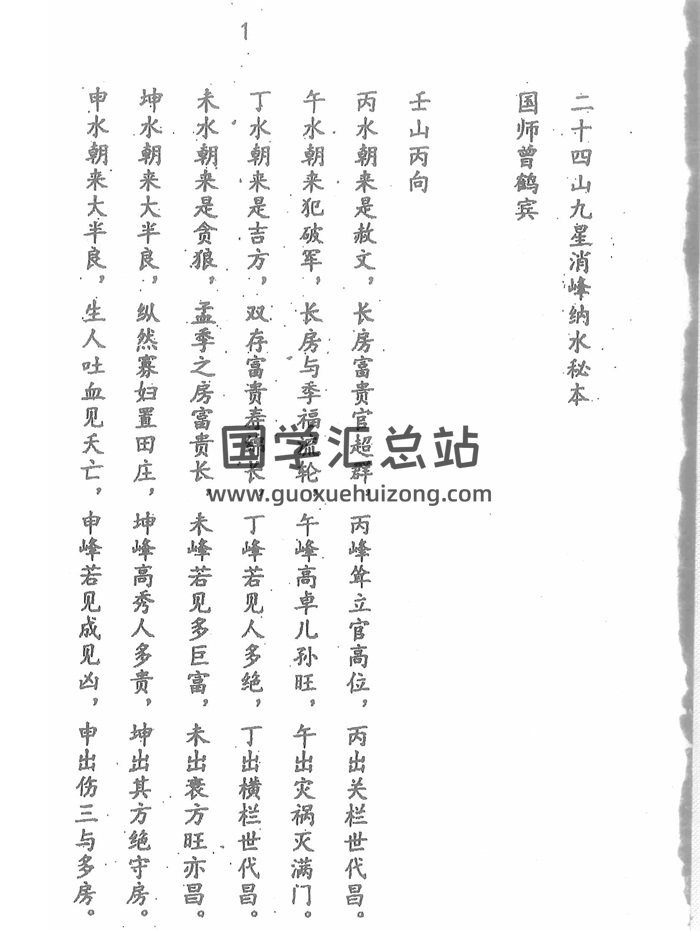 1
二十四山九星消峰纳水秘本
国师曾鹤宾
壬山丙向
丙水朝来是赦文，长房富贵官超群，丙峰耸立官高位，丙出关栏世代昌。
午水朝来犯破军，长房与季福轮，午峰高卓儿孙旺，午出灾祸灭满门。
丁水朝来是吉方，双存富贵寿长，丁峰若见人多绝，丁出横栏世代昌。
未水朝来是贪狼，孟季之房富贵长，未峰若见多巨富，未出衰方旺亦昌。
坤水朝来大半良，纵然寡妇置田庄，坤峰高秀人多贵，坤出其方绝守房。
申水朝来大半良，生人吐血见夭亡，申峰若见成见凶，申出伤三与多房。
国学汇总站
www.guoxuehuizong.com